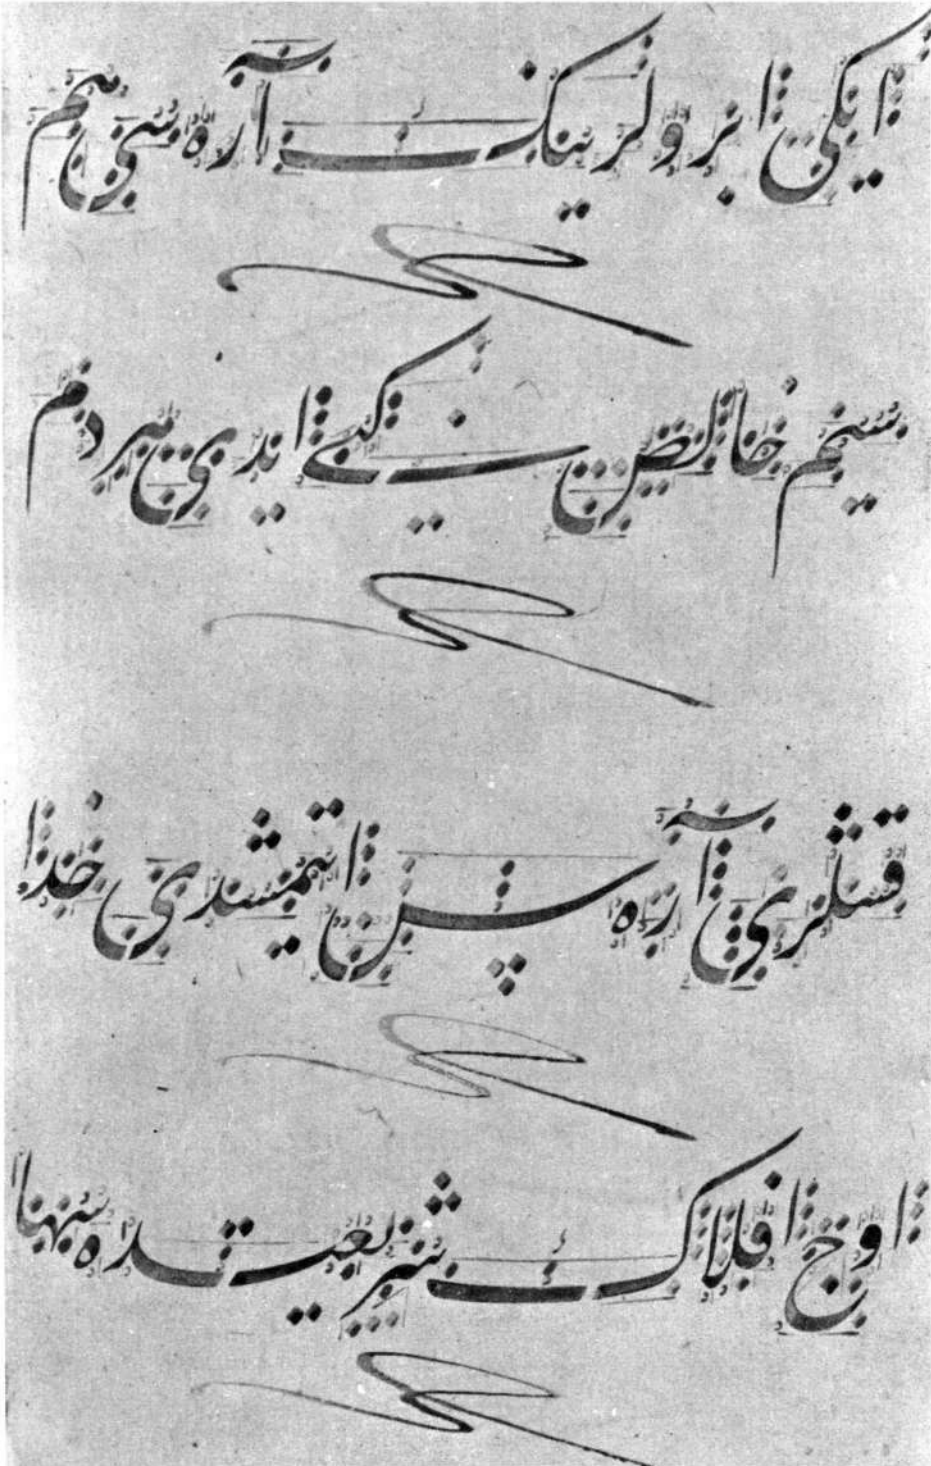 ایکی ابرولرینک آره سی هم
سیم خالص کبی ایدی هر دم
قشلرین آره سن ایتمشدی خدا
اوج افلاک شریعتده سها